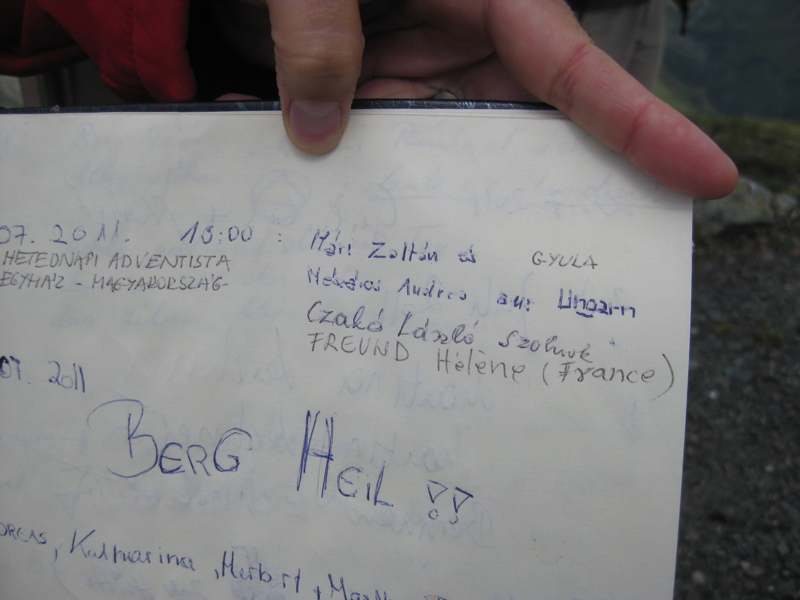 07. 2011. 13:00 : Mári Zoltán és GYULA
HETEDNAPI ADVENTISTA
EGYHÁZ - MAGYARORSZÁG-
Mészáros Andrea aus Ungarn
Czakó László Szolnok
FREUND Hélène (France)
07. 2011
BERG HEIL !!
Katharina, Herbert,